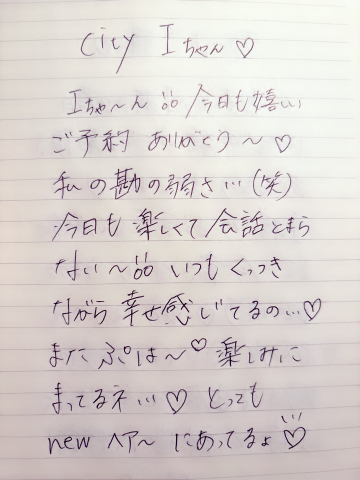 City Iちゃん♡
Iちゃ〜ん 今日も嬉しい
ご予約 ありがとう〜♡
私の勘の弱さ…(笑)
今日も 楽しくて 会話とまら
ない〜 いつも くっつき
ながら 幸せ感じてるの…♡
また ぷは〜♡ 楽しみに
まってるネ…♡ とっても
new ヘアー にあってるょ♡